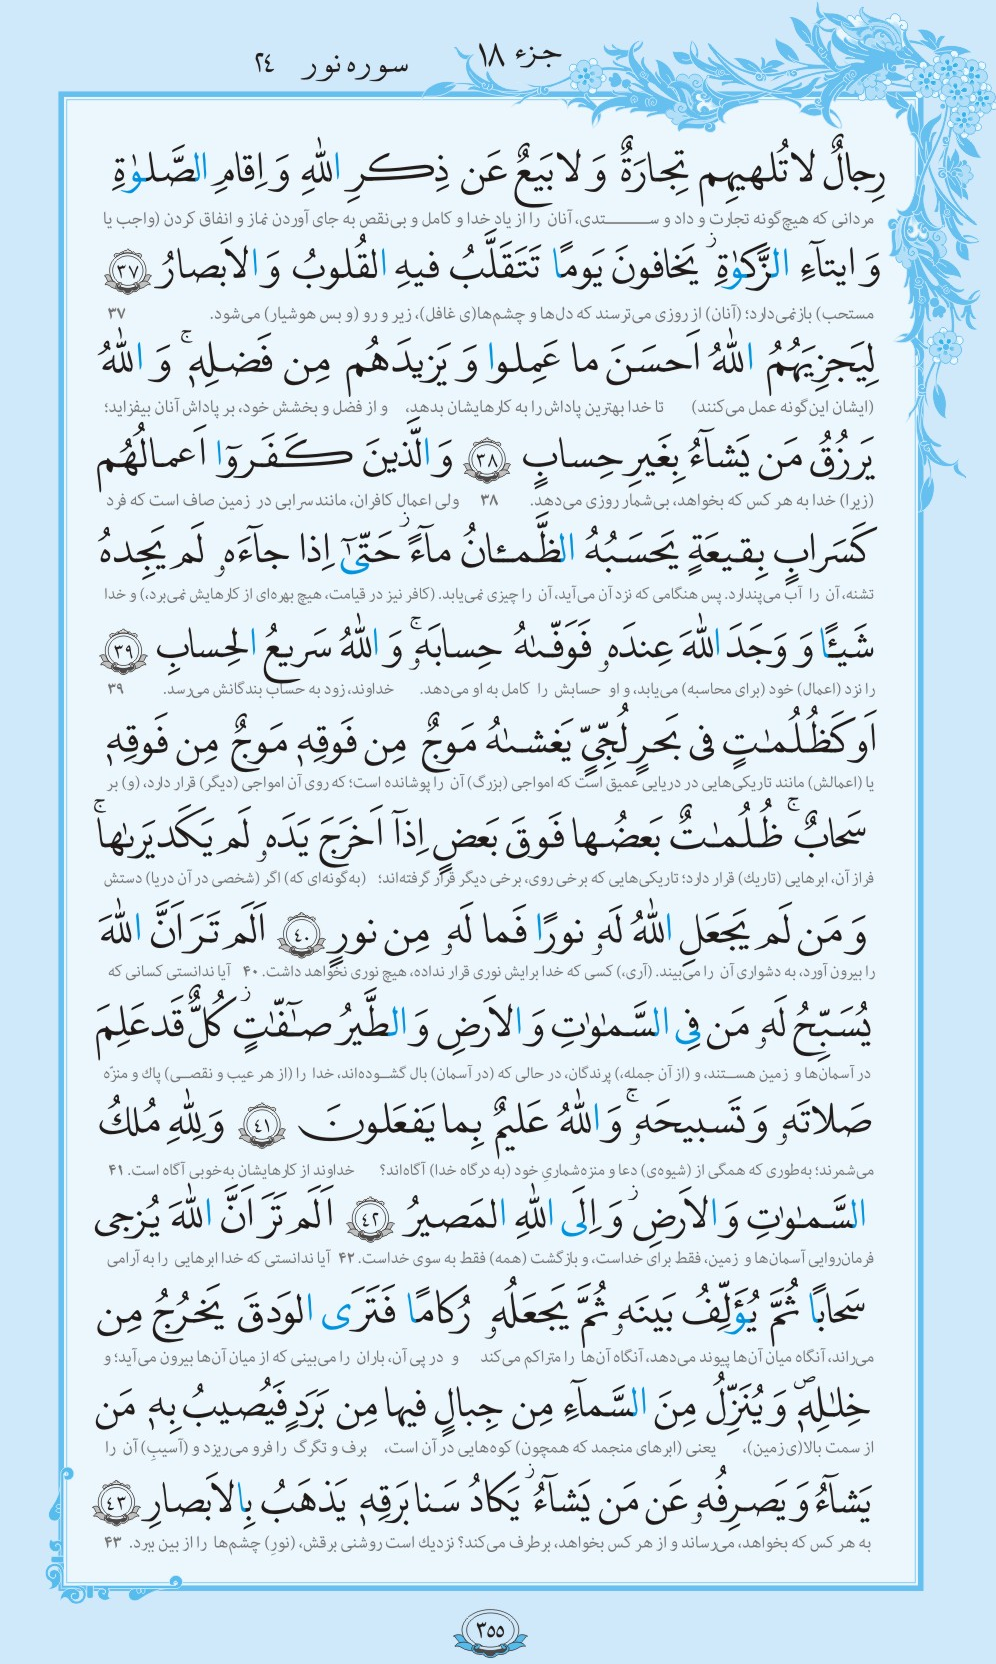 جزء ١٨
سوره نور ٢٤
رِجالٌ لا تُلهيهِم تِجارَةٌ وَ لا بَيعٌ عَن ذِكرِ اللهِ وَ اِقامِ الصَّلوٰةِ
مردانی که هیچ‌گونه تجارت و داد و ستدی، آنان را از یاد خدا و کامل و بی‌نقص به جای آوردن نماز و انفاق کردن (واجب یا
وَ ايتآءِ الزَّكوٰةِ ز يَخافونَ يَومًا تَتَقَلَّبُ فيهِ القُلوبُ وَ الاَبصارُ ٣٧
مستحب) بازنمی‌دارد؛ (آنان) از روزی می‌ترسند که دل‌ها و چشم‌ها(ی غافل)، زیر و رو (و بس هوشیار) می‌شود. ۳۷
لِيَجزِيَهُمُ اللهُ اَحسَنَ ما عَمِلوا وَ يَزيدَهُم مِن فَضلِهٖ ج وَ اللهُ
(ایشان این‌گونه عمل می‌کنند) تا خدا بهترین پاداش را به کارهایشان بدهد، و از فضل و بخشش خود، بر پاداش آنان بیفزاید؛
يَرزُقُ مَن يَشآءُ بِغَيرِ حِسابٍ ٣٨ وَ الَّذينَ كَفَروٓا اَعمالُهُم
(زیرا) خدا به هر کس که بخواهد، بی‌شمار روزی می‌دهد. ۳۸ ولی اعمال کافران، مانند سرابی در زمین صاف است که فرد
كَسَرابٍ بِقيعَةٍ يَحسَبُهُ الظَّمـٔانُ مآءً ز حَتّىٰٓ اِذا جآءَهٗ لَم يَجِدهُ
تشنه، آن را آب می‌پندارد. پس هنگامی که نزد آن می‌آید، آن را چیزی نمی‌یابد. (کافر نیز در قیامت، هیچ بهره‌ای از کارهایش نمی‌برد،) و خدا
شَيـًٔا وَ وَجَدَ اللهَ عِندَهٗ فَوَفّىٰهُ حِسابَهٗ ج وَ اللهُ سَريعُ الحِسابِ ٣٩
را نزد (اعمال) خود (برای محاسبه) می‌یابد، و او حسابش را کامل به او می‌دهد. خداوند، زود به حساب بندگانش می‌رسد. ۳۹
اَو كَظُلُمٰتٍ فى بَحرٍ لُجِّىٍّ يَغشىٰهُ مَوجٌ مِن فَوقِهٖ مَوجٌ مِن فَوقِهٖ
یا (اعمالش) مانند تاریکی‌هایی در دریایی عمیق است که امواجی (بزرگ) آن را پوشانده است؛ که روی آن امواجی (دیگر) قرار دارد، (و) بر
سَحابٌ ج ظُلُمٰتٌ بَعضُها فَوقَ بَعضٍ اِذآ اَخرَجَ يَدَهٗ لَم يَكَد يَرىٰها ج
فراز آن، ابرهایی (تاریك) قرار دارد؛ تاریکی‌هایی که برخی روی، برخی دیگر قرار گرفته‌اند؛ (به‌گونه‌ای که) اگر (شخصی در آن دریا) دستش
وَ مَن لَم يَجعَلِ اللهُ لَهٗ نورًا فَما لَهٗ مِن نورٍ ٤٠ اَلَم تَرَ اَنَّ اللهَ
را بیرون آورد، به دشواری آن را می‌بیند. (آری،) کسی که خدا برایش نوری قرار نداده، هیچ نوری نخواهد داشت. ۴۰ آیا ندانستی کسانی که
يُسَبِّحُ لَهٗ مَن فِى السَّمٰوٰتِ وَ الاَرضِ وَ الطَّيرُ صآفّٰتٍ ز كُلٌّ قَد عَلِمَ
در آسمان‌ها و زمین هستند، و (از آن جمله،) پرندگان، در حالی که (در آسمان) بال گشوده‌اند، خدا را (از هر عیب و نقصی) پاك و منزّه
صَلاتَهٗ وَ تَسبيحَهٗ ج وَ اللهُ عَليمٌ بِما يَفعَلونَ ٤١ وَ لِلّٰهِ مُلكُ
می‌شمرند؛ به‌طوری که همگی از (شیوه‌ی) دعا و منزه‌شماریِ خود (به درگاه خدا) آگاه‌اند؟ خداوند از کارهایشان به‌خوبی آگاه است. ۴۱
السَّمٰوٰتِ وَ الاَرضِ ز وَ اِلَى اللهِ المَصيرُ ٤٢ اَلَم تَرَ اَنَّ اللهَ يُزجى
فرمان‌روایی آسمان‌ها و زمین، فقط برای خداست، و بازگشت (همه) فقط به سوی خداست. ۴۲ آیا ندانستی که خدا ابرهایی را به آرامی
سَحابًا ثُمَّ يُؤَلِّفُ بَينَهٗ ثُمَّ يَجعَلُهٗ رُكامًا فَتَرَى الوَدقَ يَخرُجُ مِن
می‌راند، آنگاه میان آن‌ها پیوند می‌دهد، آنگاه آن‌ها را متراکم می‌کند و در پی آن، باران را می‌بینی که از میان آن‌ها بیرون می‌آید؛ و
خِلٰلِهٖ ص وَ يُنَزِّلُ مِنَ السَّمآءِ مِن جِبالٍ فيها مِن بَرَدٍ فَيُصيبُ بِهٖ مَن
از سمت بالا(ی زمین)، یعنی (ابرهای منجمد که همچون) کوه‌هایی در آن است، برف و تگرگ را فرو می‌ریزد و (آسیب) آن را
يَشآءُ وَ يَصرِفُهٗ عَن مَن يَشآءُ ز يَكادُ سَنا بَرقِهٖ يَذهَبُ بِالاَبصارِ ٤٣
به هر کس که بخواهد، می‌رساند و از هر کس بخواهد، برطرف می‌کند؟ نزدیك است روشنی برقش، (نورِ) چشم‌ها را از بین ببرد. ۴۳
٣٥٥